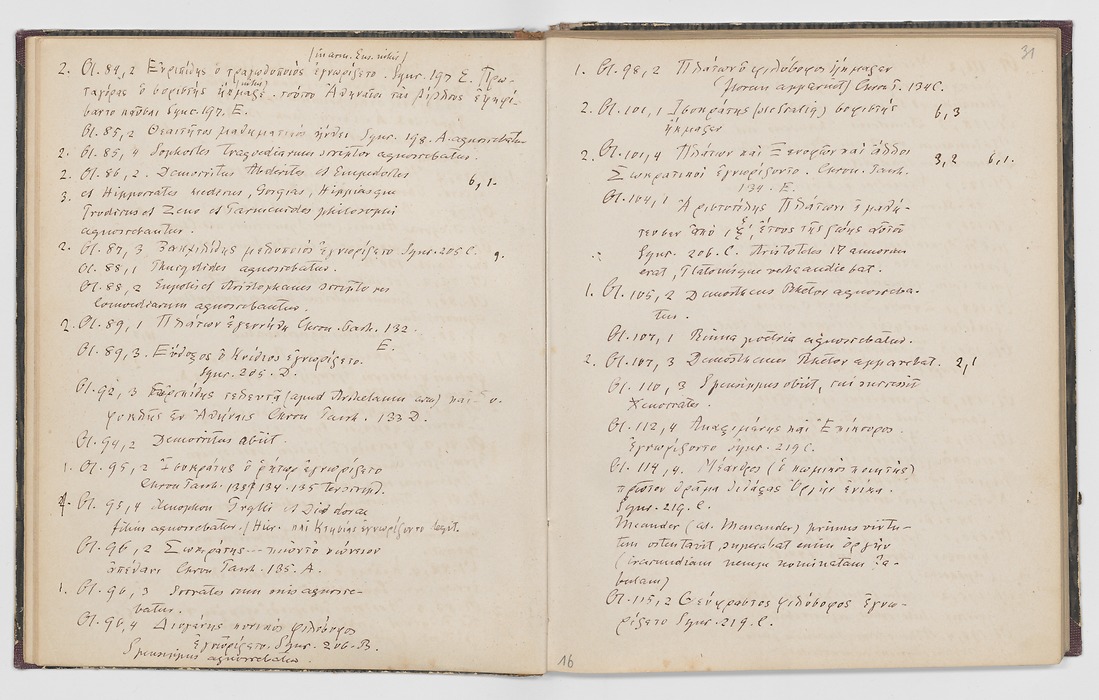 (in arm. Eus. vetus)
2. Ol. 84, 2 Εὐριπίδης ὁ τραγῳδοποιὸς ἐγνωρίζετο. Sync. 197 E. Πρω-
ταγόρας ὁ σοφιστὴς ἤκμαζε. τούτου Ἀθηναῖοι τὰς βίβλους ἐψηφί-
σαντο καῦσαι Sync. 197, E.
Ol. 85, 2 Θεαίτητος μαθηματικὸς ἤνθει Sync. 198. A. agnoscebatur
2. Ol. 85, 4 Sophocles tragoediarum scriptor agnoscebatur.
2. Ol. 86, 2. Democritus Abderites et Empedocles
3. et Hippocrates medicus, Gorgias, Hippiasque 6, 1.
Prodicus et Zeno et Parmenides philosophi
agnoscebantur.
2. Ol. 87, 3 Βακχυλίδης μελοποιὸς ἐγνωρίζετο Sync. 205 C. 9.
Ol. 88, 1 Thucydides agnoscebatur.
Ol. 88, 2 Eupolis et Aristophanes scriptores
comoediarum agnoscebantur.
2. Ol. 89, 1 Πλάτων ἐγεννήθη Chron. Pasch. 132.
E.
Ol. 89, 3. Εὔδοξος ὁ Κνίδιος ἐγνωρίζετο.
Sync. 205. D.
Ol. 92, 3 Εὐριπίδης τελευτᾷ (apud Archelaum arm) καὶ Σο-
φοκλῆς ἐν Ἀθήναις Chron Pasch. 133 D.
Ol. 94, 2 Democritus obiit.
1. Ol. 95, 2 Ἰσοκράτης ὁ ῥήτωρ ἐγνωρίζετο
Chron Pasch. 134. 135
Ol. 95, 4 Xenophon Grylli et Diodorae
filius agnoscebatur. (Hier. καὶ Κτησίας ἐγνωρίζοντο
Ol. 96, 2 Σωκράτης --- κώνειον
ἀπέθανε Chron Pasch. 135. A.
1. Ol. 96, 3 Socrates cum suis agnosce-
batur.
Ol. 96, 4 Διογένης κυνικὸς φιλόσοφος
ἐγνωρίζετο. Sync. 206. B.
Speusippus agnoscebatur.
31
1. Ol. 98, 2 Πλάτων ὁ φιλόσοφος ἤκμαζεν
Chron P. 134 C.
2. Ol. 101, 1 Ἰσοκράτης σοφιστὴς 6, 3
ἤκμαζεν
2. Ol. 101, 4 Πλάτων καὶ Ξενοφῶν καὶ ἄλλοι 3, 2 6, 1.
Σωκρατικοὶ ἐγνωρίζοντο. Chron. Pasch.
134. E.
Ol. 104, 1 Ἀριστοτέλης Πλάτωνι ἐμαθή-
τευσεν ἀπὸ ἔτους τῆς ζωῆς αὐτοῦ
Sync. 206. C. Aristoteles 18 annorum
erat, Platonisque verba audiebat.
1. Ol. 105, 2 Demosthenes Rhetor agnosceba-
tur.
Ol. 107, 1 Rinna poetria agnoscebatur.
2. Ol. 107, 3 Demosthenes Rhetor apparebat. 2,1
Ol. 110, 3 Speusippus obiit, cui successit
Xenocrates.
Ol. 112, 4 Ἀναξιμένης καὶ Ἐπίκουρος
ἐγνωρίζοντο Sync. 219 C.
Ol. 114, 4. Μένανδρος (ὁ κωμικὸς ποιητὴς)
πρῶτον δρᾶμα διδάξας Ὀργὴν ἐνίκα.
Sync. 219. C.
Meander (al. Menander) primus virtu-
tem ostentavit, superabat enim ὀργὴν
(iracundiam nempe nominatam fa-
bulam)
Ol. 115, 2 Θεόφραστος φιλόσοφος ἐγνω-
ρίζετο Sync. 219. C.
16